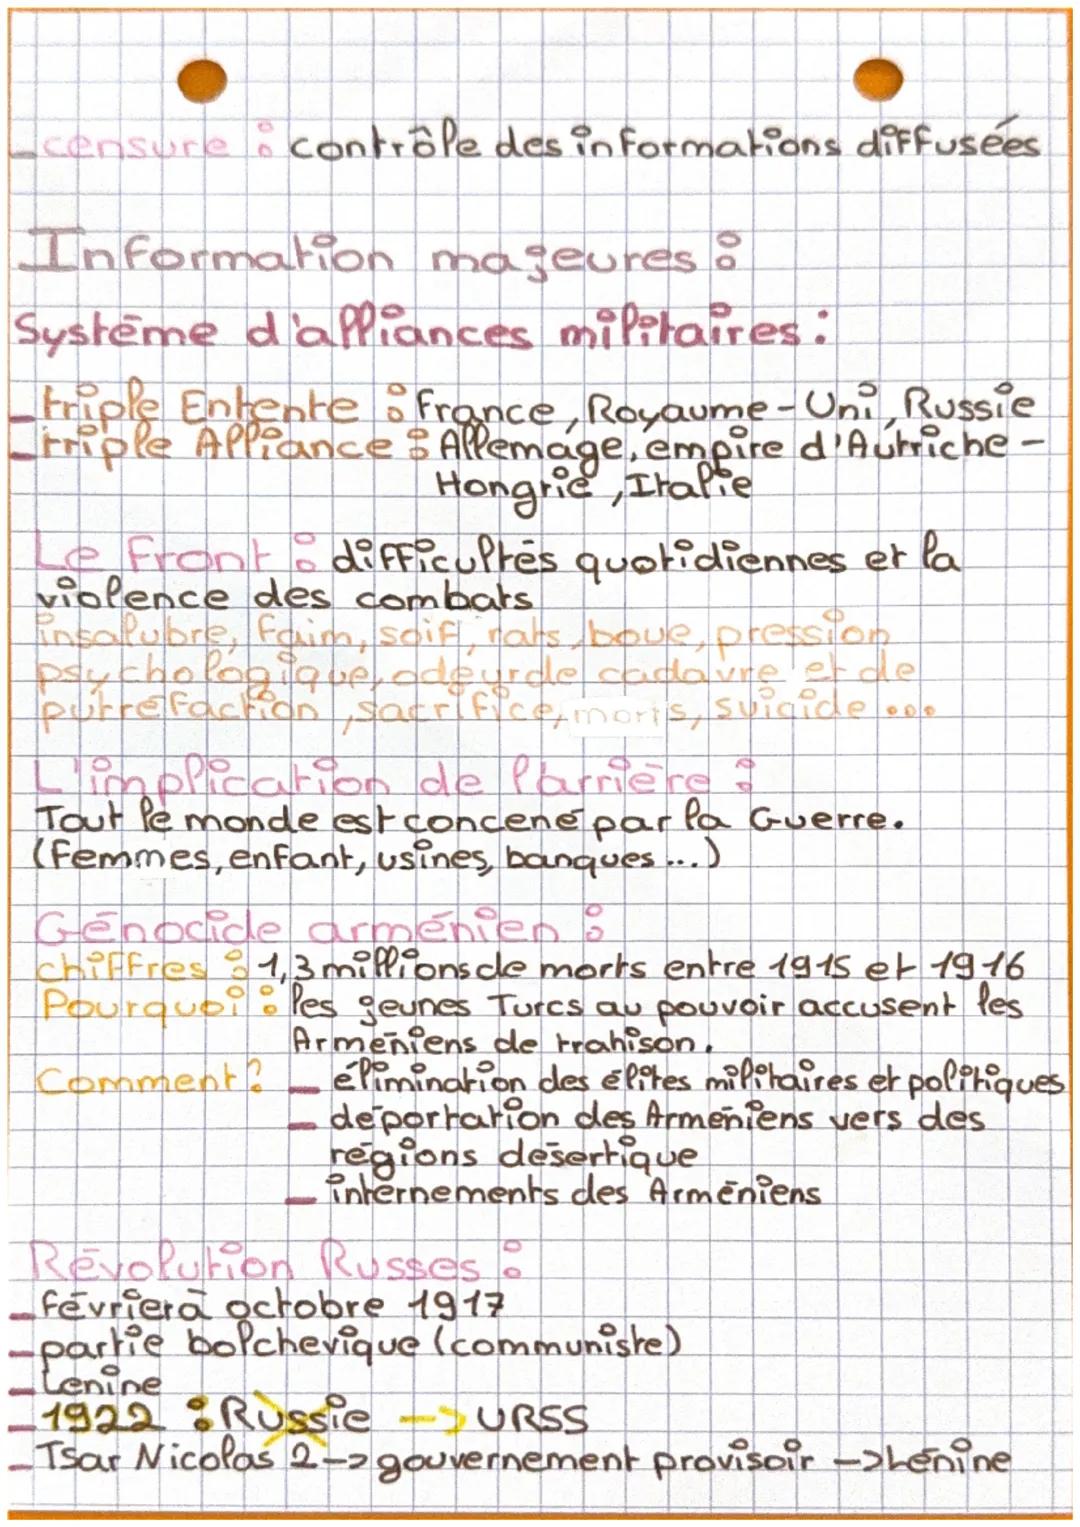 - censure : contrôle des informations diffusées
Information majeures :
Système d'alliances militaires :
- triple Entente : France, Royaume-Uni, Russie
- triple Alliance : Allemage, empire d'Autriche -
Hongrie, Italie
Le Front : difficultés quotidiennes et la
violence des combats
insalubre, faim, soif, rats, boue, pression
psychologique, odeur de cadavre et de
putréfaction, sacrifice, morts, suicide ...
L'implication de l'arrière :
Tout le monde est concené par la Guerre.
(Femmes, enfant, usines, banques ...)
Génocide arménien :
chiffres : 1,3 millions de morts entre 1915 et 1916
Pourquoi : les jeunes Turcs au pouvoir accusent les
Arméniens de trahison.
Comment ? - élimination des élites militaires et politiques
- déportation des Arméniens vers des
régions désertique
- internements des Arméniens
Révolution Russes :
- février à octobre 1917
- partie bolchevique (communiste)
- Lenine
- 1922 : Russie --> URSS
- Tsar Nicolas 2 -> gouvernement provisoir -> Lénine